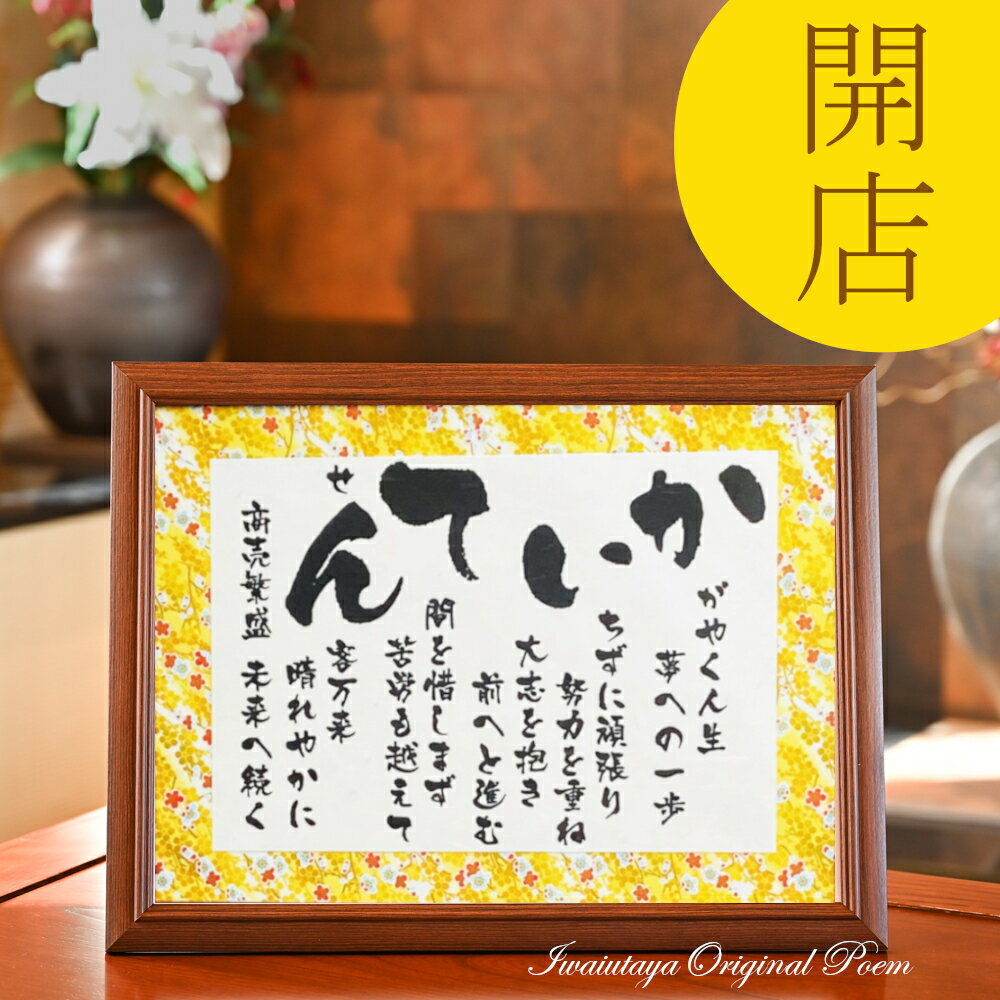 開店
かがやく人生
夢への一歩
いちずに頑張り
努力を重ね
大志を抱き
前へと進む
て間を惜しまず
苦労も越えて
せん客万来
晴れやかに
商売繁盛 未来へ続く
Iwaiutaya Original Poem